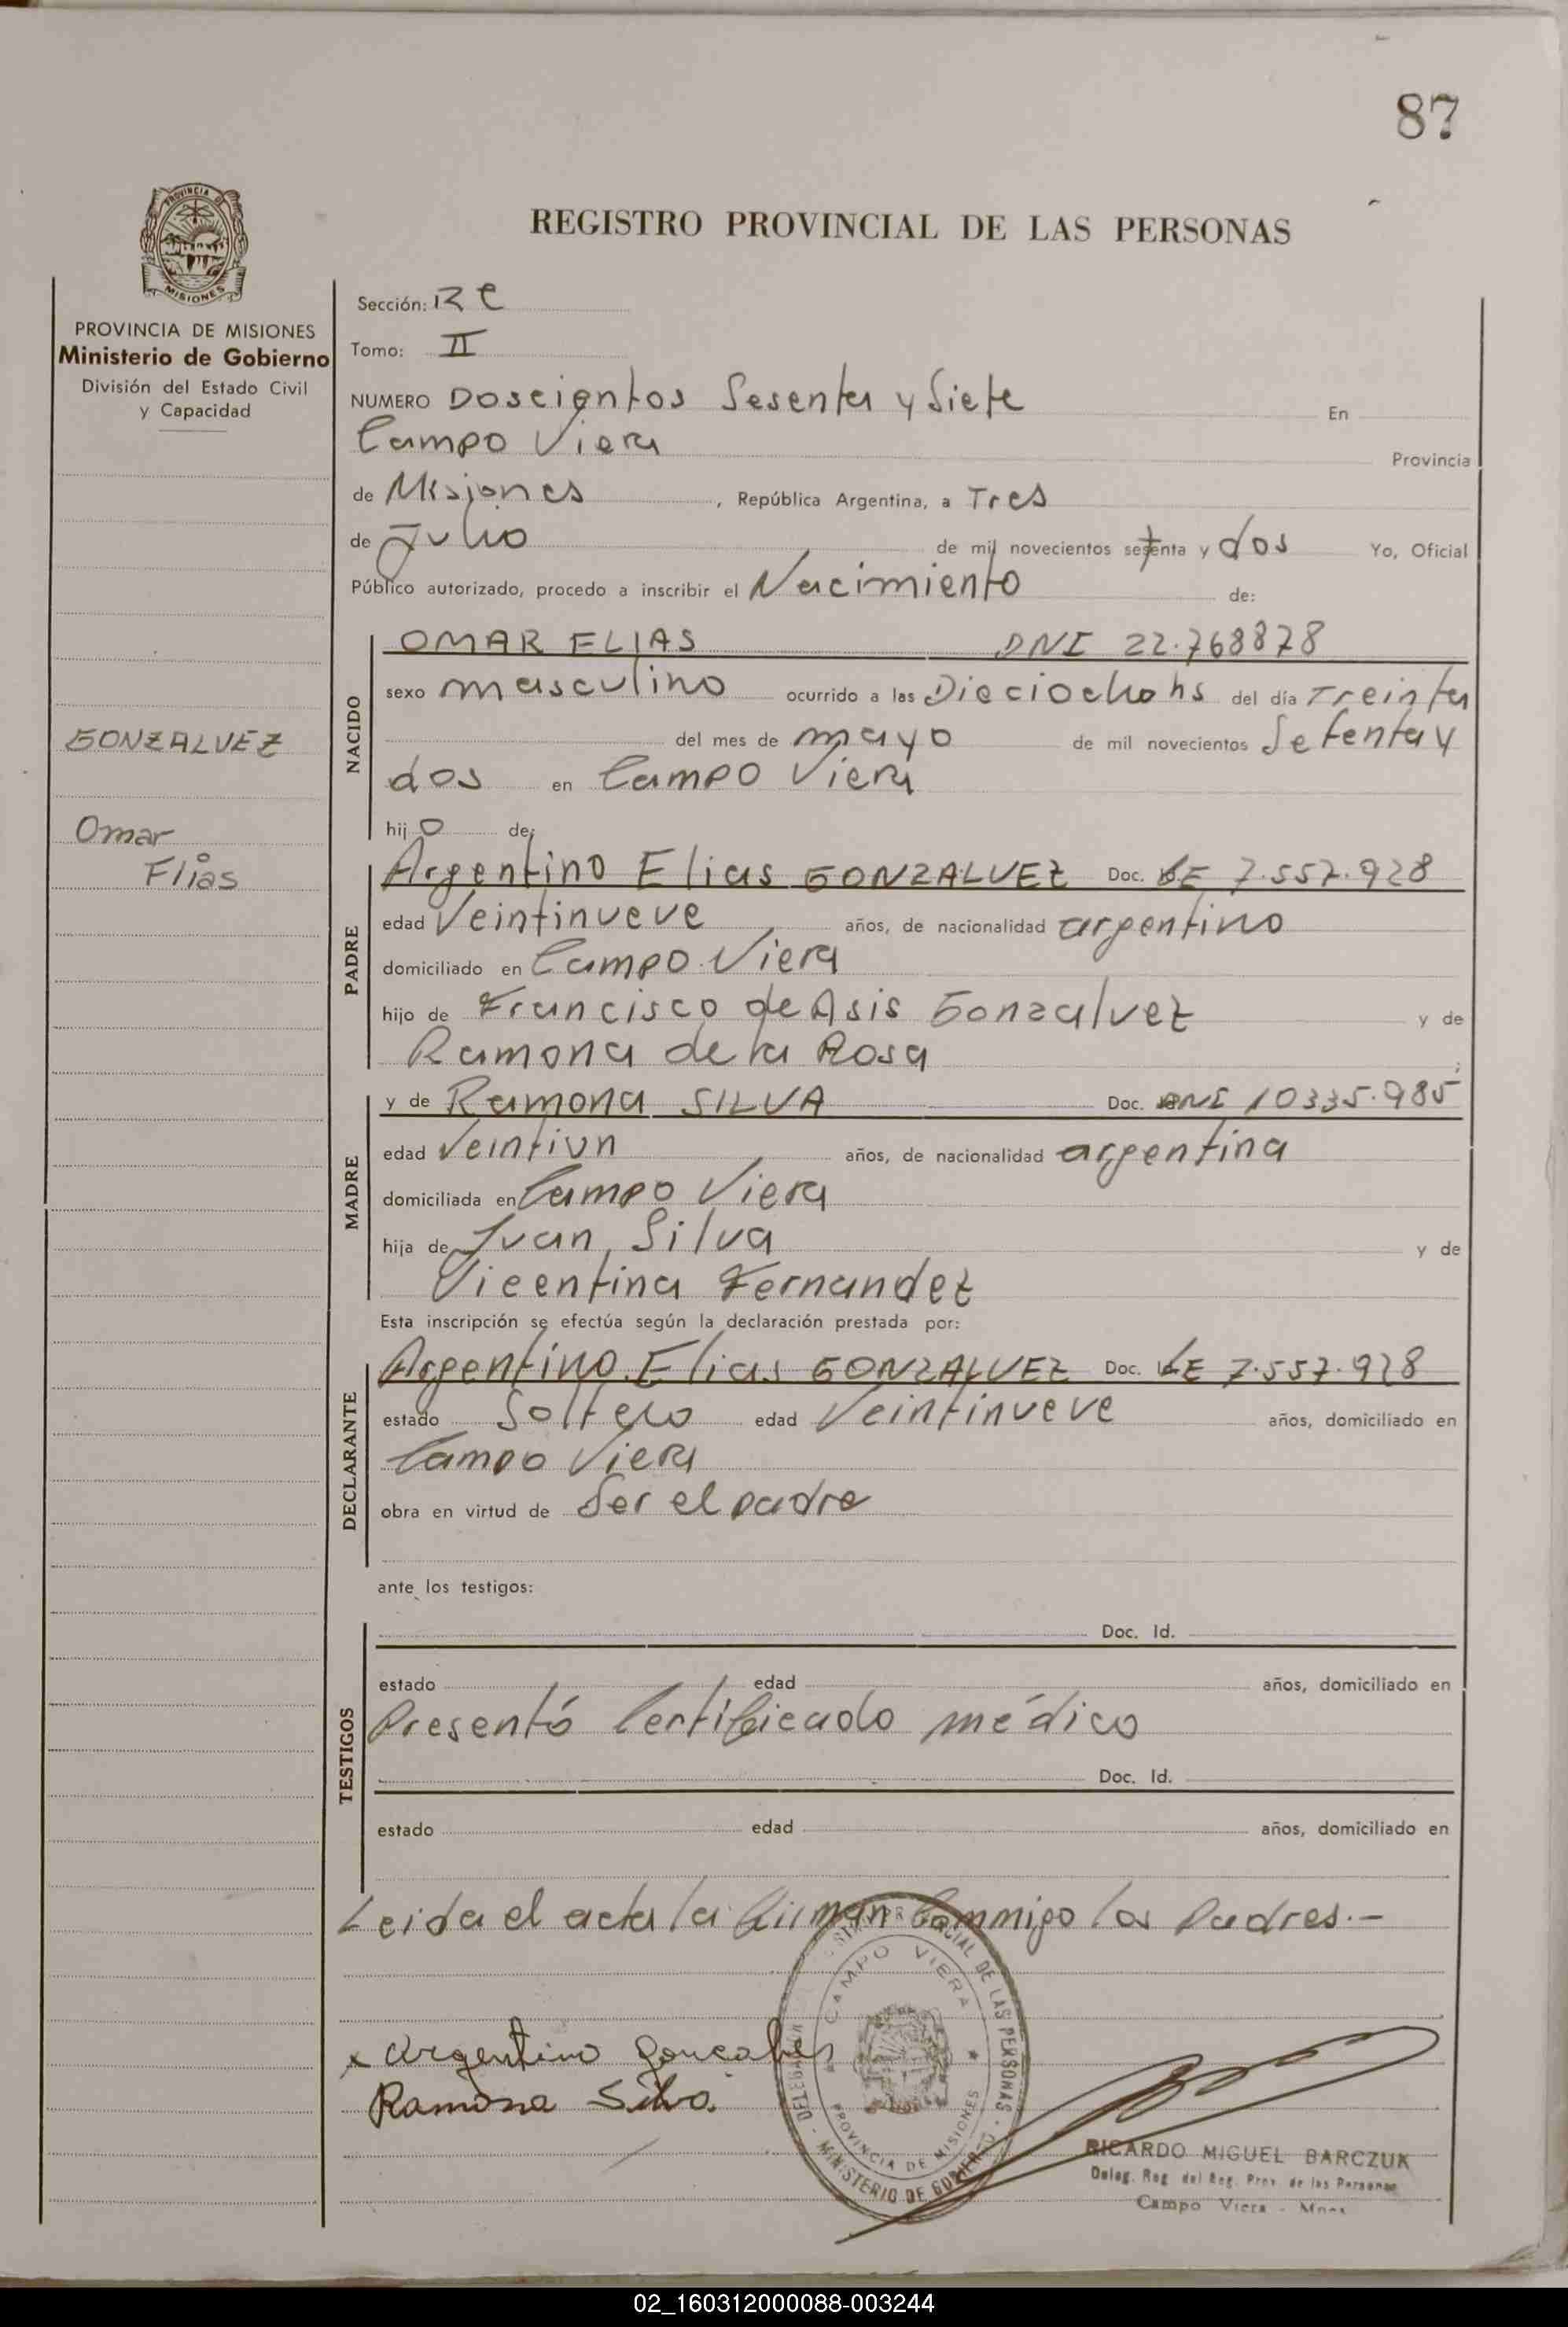 87
REGISTRO PROVINCIAL DE LAS PERSONAS
PROVINCIA DE MISIONES
Ministerio de Gobierno
División del Estado Civil
y Capacidad
GONZALVEZ
Omar
Elias
Sección:
Tomo: II
NUMERO Doscientos Sesenta y Siete En
Campo Viera Provincia
de Misiones, República Argentina, a Tres
de Julio de mil novecientos setenta y dos Yo, Oficial
Público autorizado, procedo a inscribir el Nacimiento de:
NACIDO
OMAR ELIAS DNI 22.768878
sexo masculino ocurrido a las Dieciocho hs del día Treinta
del mes de mayo de mil novecientos Setenta y
dos en Campo Viera
hijo de:
PADRE
Argentino Elias GONZALVEZ Doc. LE 7.557.928
edad Veintinueve años, de nacionalidad argentino
domiciliado en Campo Viera
hijo de Francisco de Asis Gonzalvez y de
Ramona de la Rosa ;
MADRE
y de Ramona SILVA Doc. DNI 10335.985
edad Veintiun años, de nacionalidad argentina
domiciliada en Campo Viera
hija de Juan Silva y de
Vicentina Fernandez
Esta inscripción se efectúa según la declaración prestada por:
DECLARANTE
Argentino Elias GONZALVEZ Doc. LE 7.557.928
estado Soltero edad Veintinueve años, domiciliado en
Campo Viera
obra en virtud de Ser el padre
ante los testigos:
TESTIGOS
Doc. Id.
estado edad años, domiciliado en
Presentó Certificado médico
Doc. Id.
estado edad años, domiciliado en
Leida el acta la firman Commigo los Padres.-
CAMPO VIERA
PROVINCIA DE MISIONES
DELEGACIÓN
DE LAS PERSONAS
MINISTERIO DE GOBIERNO
x Argentino Goncalves
Ramona Silva
RICARDO MIGUEL BARCZUK
Deleg. Reg. del Reg. Prov. de las Personas
Campo Viera - Mnes
02_160312000088-003244